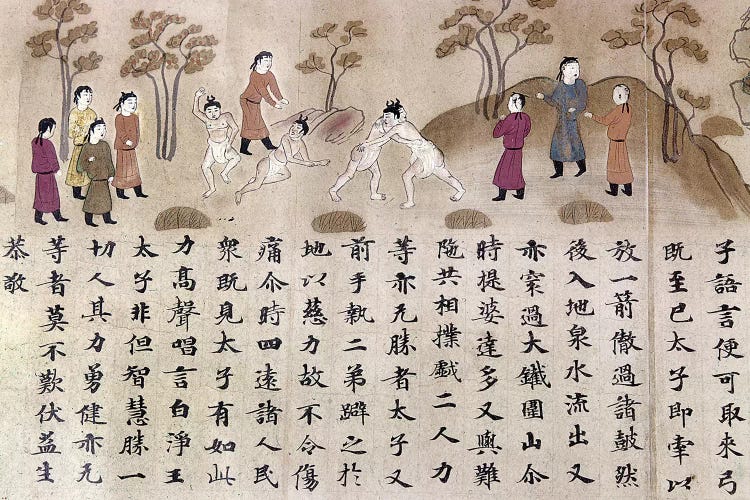 子語言便可取來弓
既至已太子即牽以
放一箭徹過諸鼓然
後入地泉水流出又
亦穿過大鐵圍山尒
時提婆達多又與難
陁共相撲戯二人力
等亦无勝者太子又
前手執二弟躃之於
地以慈力故不令傷
痛尒時四遠諸人民
衆既見太子有如此
力髙聲唱言白淨王
太子非但智慧勝一
切人其力勇健亦无
等者莫不歎伏益生
恭敬